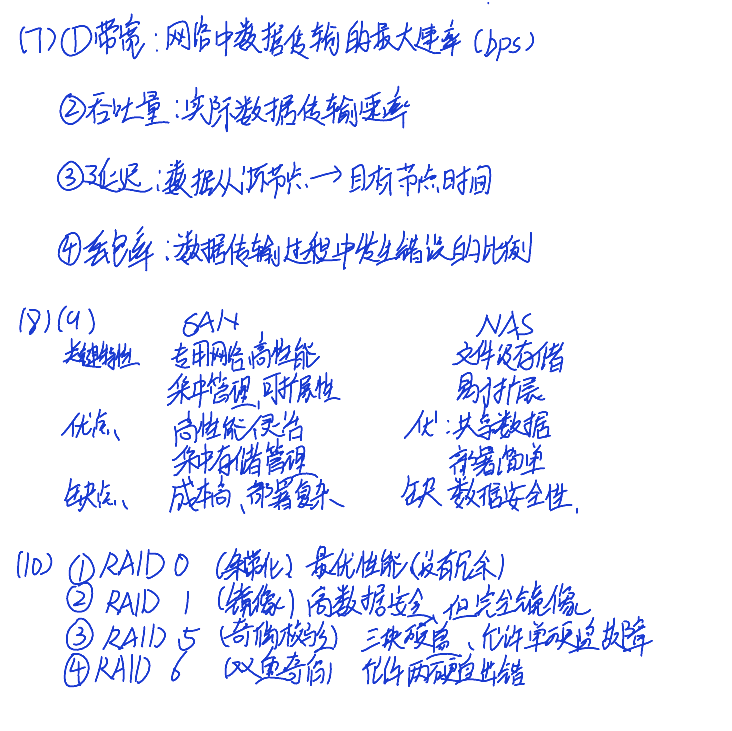 (7) ①带宽：网络中数据传输的最大速率 (bps)
②吞吐量：实际数据传输速率
③延迟：数据从源节点→目标节点时间
④丢包率：数据传输过程中发生错误的比例
(8)(9) SAN NAS
关键特性 专用网络,高性能 文件级存储
集中管理,可扩展性 易于扩展
优点、 高性能灵活 优：共享数据
集中存储管理 部署简单
缺点、 成本高、部署复杂 缺 数据安全性.
(10) ① RAID 0 (条带化) 最优性能(没有冗余)
② RAID 1 (镜像) 高数据安全、但完全镜像
③ RAID 5 (奇偶校验) 三块硬盘、允许单硬盘故障
④ RAID 6 (双重奇偶) 允许两硬盘出错